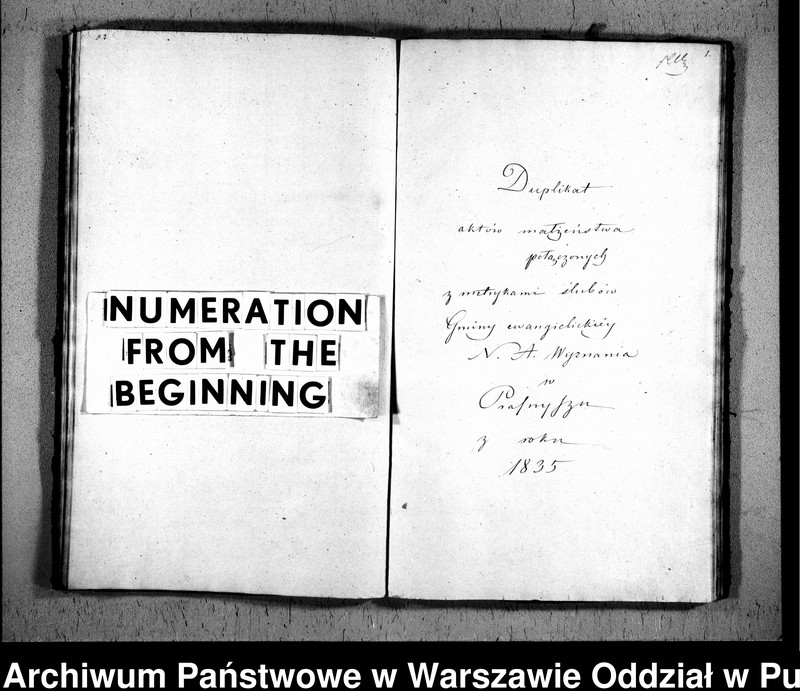 92
NUMERATION
FROM THE
BEGINNING
1.
Duplikat
aktów małżeństwa
połączonych
z metrykami ślubów
Gminy ewangielickiéy
N. A. Wyznania
w
Prasnyszu
z roku
1835
Archiwum Państwowe w Warszawie Oddział w Pu